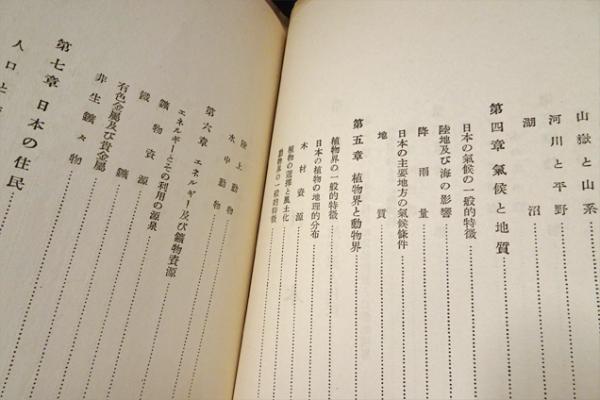 山嶽と山系
河川と平野
湖沼
第四章 氣候と地質
日本の氣候の一般的特徴
陸地及び海の影響
降雨量
日本の主要地方の氣候條件
地質
第五章 植物界と動物界
植物界の一般的特徴
日本の植物の地理的分布
木材資源
植物の選擇と風土化
動物界の一般的特徴
陸上動物
水中動物
第六章 エネルギー及び鑛物資源
エネルギーとその利用の源泉
鑛物資源
鐵鑛
有色金屬及び貴金屬
非生鑛々物
第七章 日本の住民
人口と